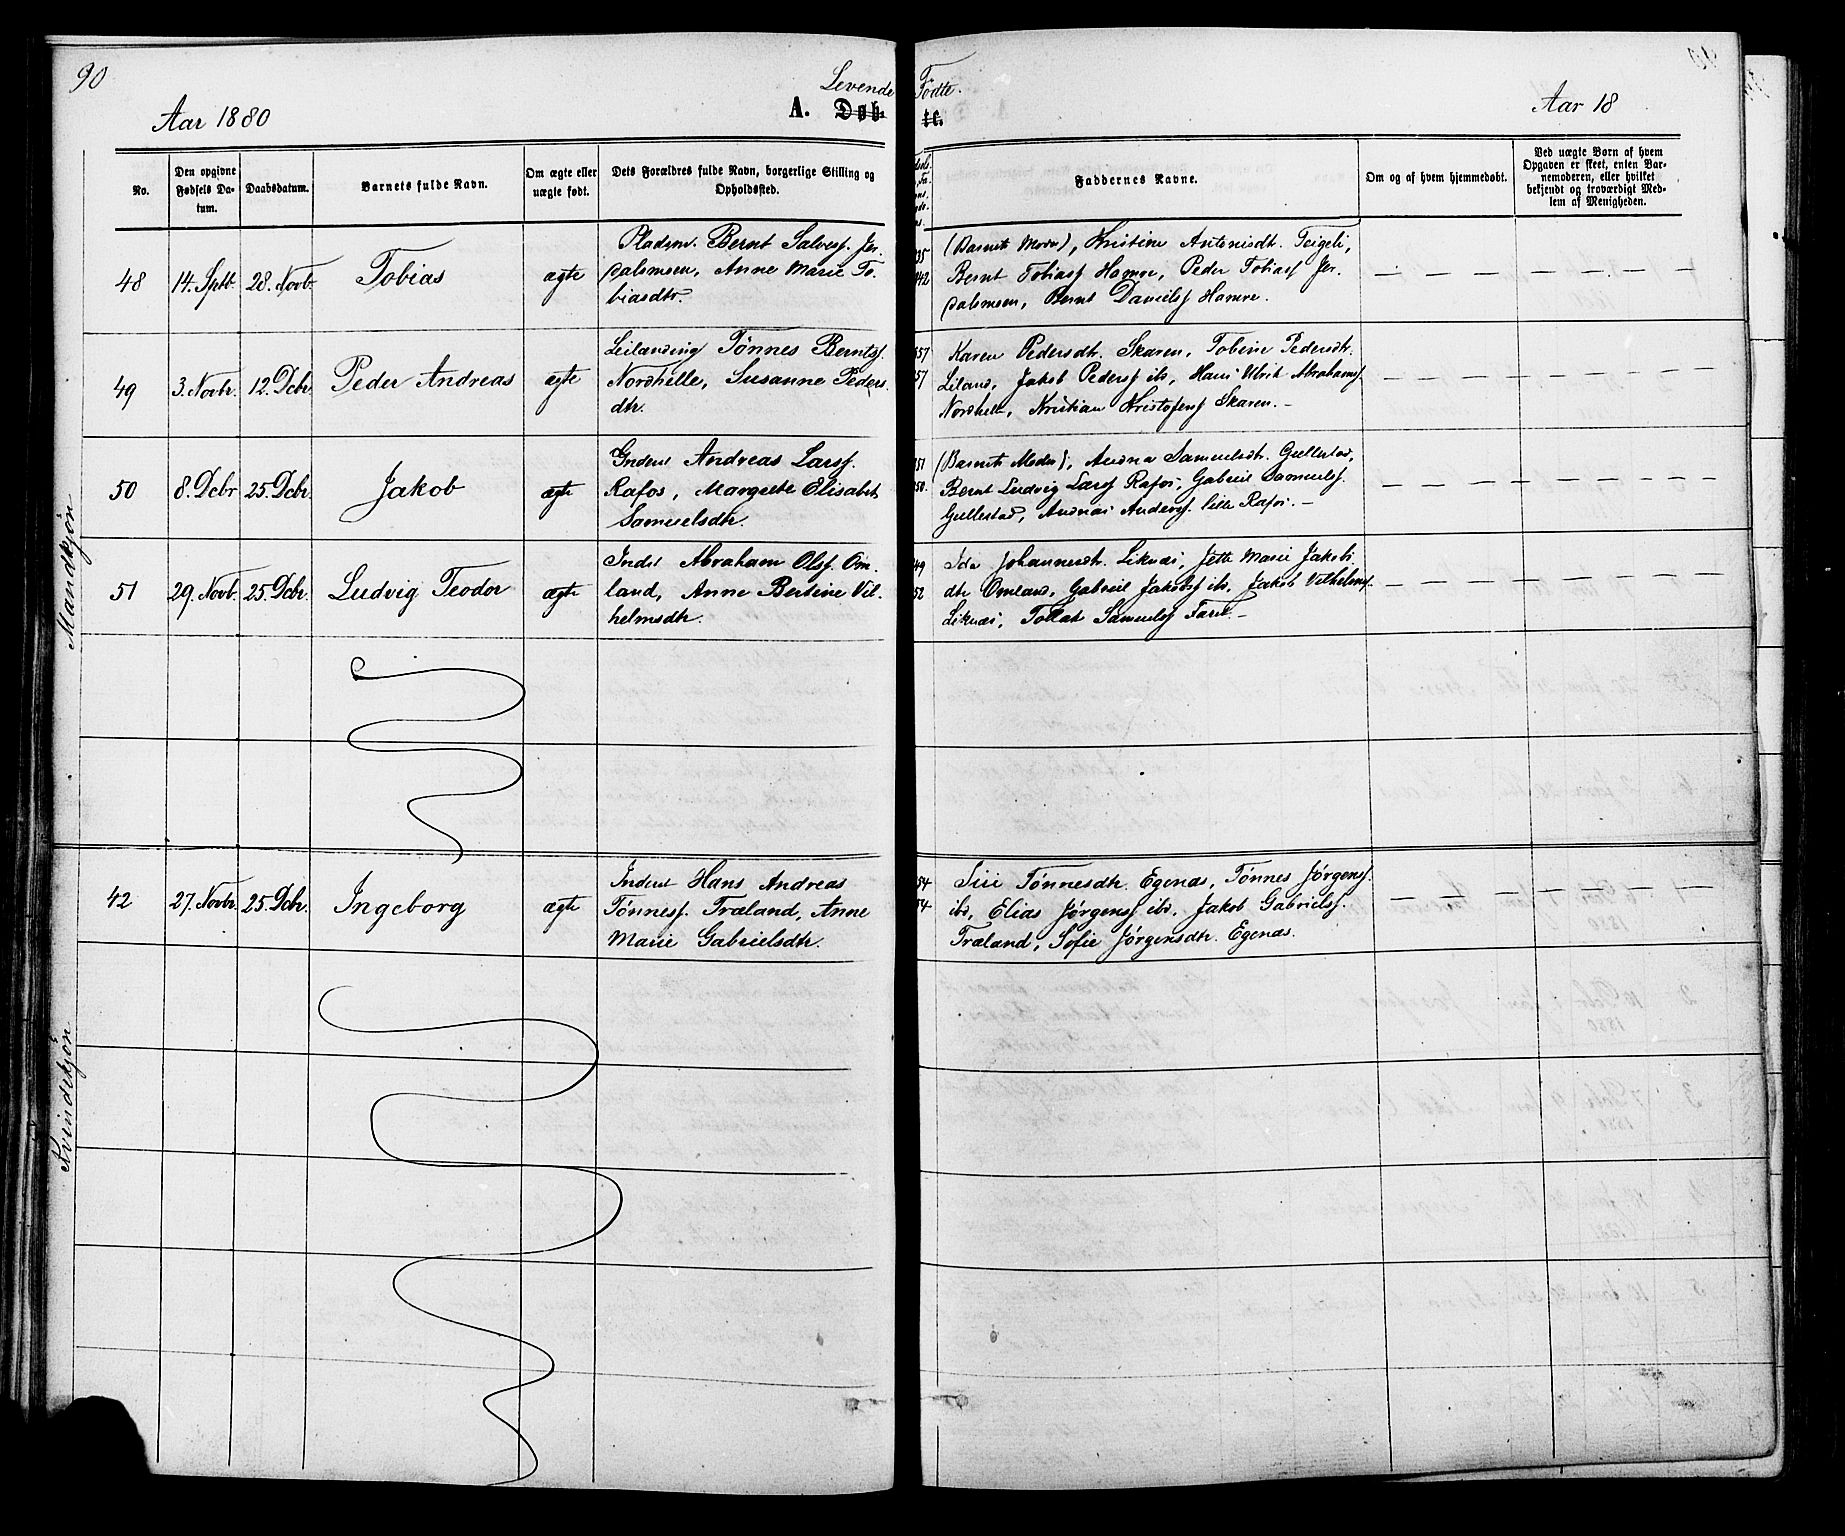 90
Levende Fødte.
Aar 1880
A. Døbte.
Aar 18
No.
Den opgivne Fødsels Da-
tum.
Daabsdatum.
Barnets fulde Navn.
Om ægte eller
uægte født.
Dets Forældres fulde Navn, borgerlige Stilling og
Opholdssted.
Faddernes Navne.
Om og af hvem hjemmedøbt.
Ved uægte Børn af hvem
Opgaven er skeet, enten Bar-
nemoderen, eller hvilket
bekjendt og troværdigt Med-
lem af Menigheden.
Mandkjøn
48 14. Sptb. 28. Novb. Tobias ægte
Pladsm. Bernt Salvess. Jer-
dalsmoen, Anne Marie To-
biasdtr.
35
42
(Barnets Moder), Kristine Antonisdt. Teigeli,
Bernt Tobiass Hamre, Peder Tobiass Jer-
dalsmoen, Bernt Daniels Hamre.
49 3. Novbr. 12. Dcbr. Peder Andreas ægte
Leilænding Tønnes Berntss.
Nordhelle, Susanne Peders
dtr.
57
57
Karen Pedersdtr. Skaren, Tobine Pedersdtr.
Liland, Jakob Peders ib, Hans Ulrik Abrahams.
Nordhelle, Kristian Kristofers Skaren. -
50 8. Dcbr 25. Dcbr. Jakob ægte
Gaardm. Andreas Larss.
Rafos, Margrete Elisabet
Samuelsdtr.
51
50.
(Barnets Moder), Andrea Samuelsdtr. Gullestad,
Bernt Ludvig Larss Rafos, Gabriel Samuels.
Gullestad, Andreas Anderss. lille Rafos. -
51 29. Novb. 25. Dcbr. Ludvig Teodor ægte
Inderst Abraham Olss. Om-
land, Anne Bertine Vil-
helmsdtr.
49
52
Ida Johannesdt. Liknæs, Jette Marie Jakobs
dtr Omland, Gabriel Jakobs ib, Jakob Vilhelms.
Liknæs, Tollak Samuels Faret. -
Kvindekjøn
42 27. Novbr. 25. Dcbr. Ingeborg ægte
Inderst Hans Andreas
Tønness. Træland, Anne
Marie Gabrielsdtr.
54
54
Siri Tønnesdtr. Egenæs, Tønnes Jørgens.
ib, Elias Jørgens ib, Jakob Gabriels.
Træland, Sofie Jørgensdtr. Egenæs.